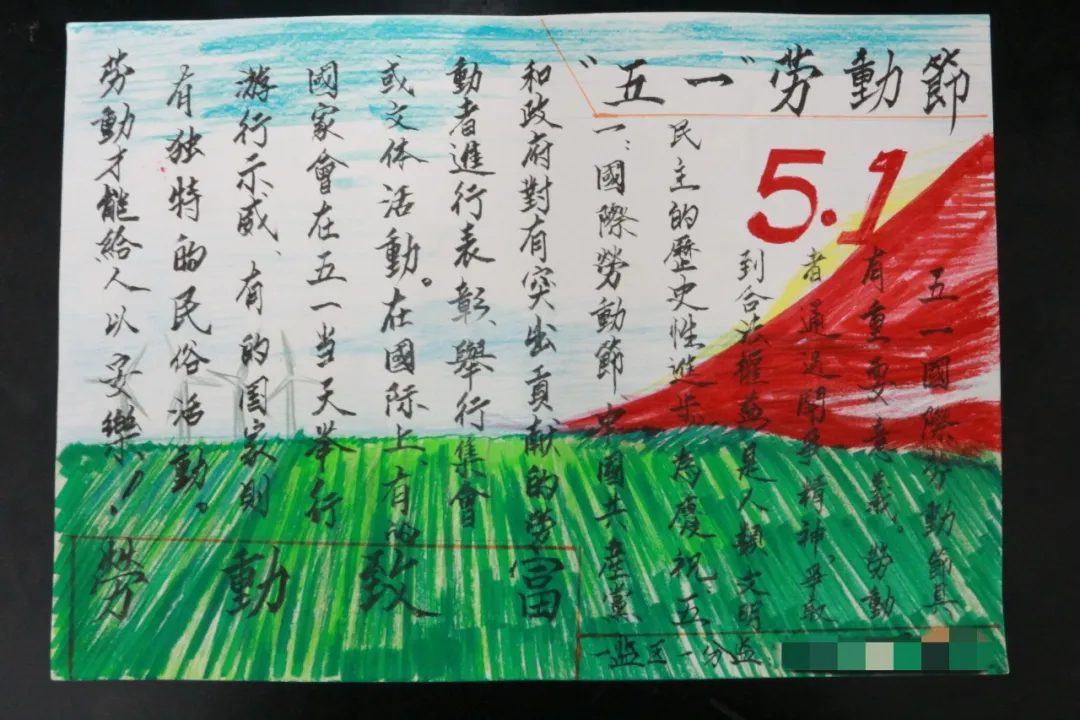 “五一”劳動節
5.1
五一國際劳動節具
有重要意義。劳動
者通過鬪争精神、爭取
到合法權益是人類文明
民主的歷史性進步。為慶祝五
一、國際勞動節、中國共産黨
和政府對有突出貢献的劳
動者進行表彰、舉行集會
或文体活動。在國际上、有的
國家會在五一当天举行
游行示威、有的国家则
有独特的民俗活動。
劳動才能給人以安樂！
勞動致富
一监区一分监